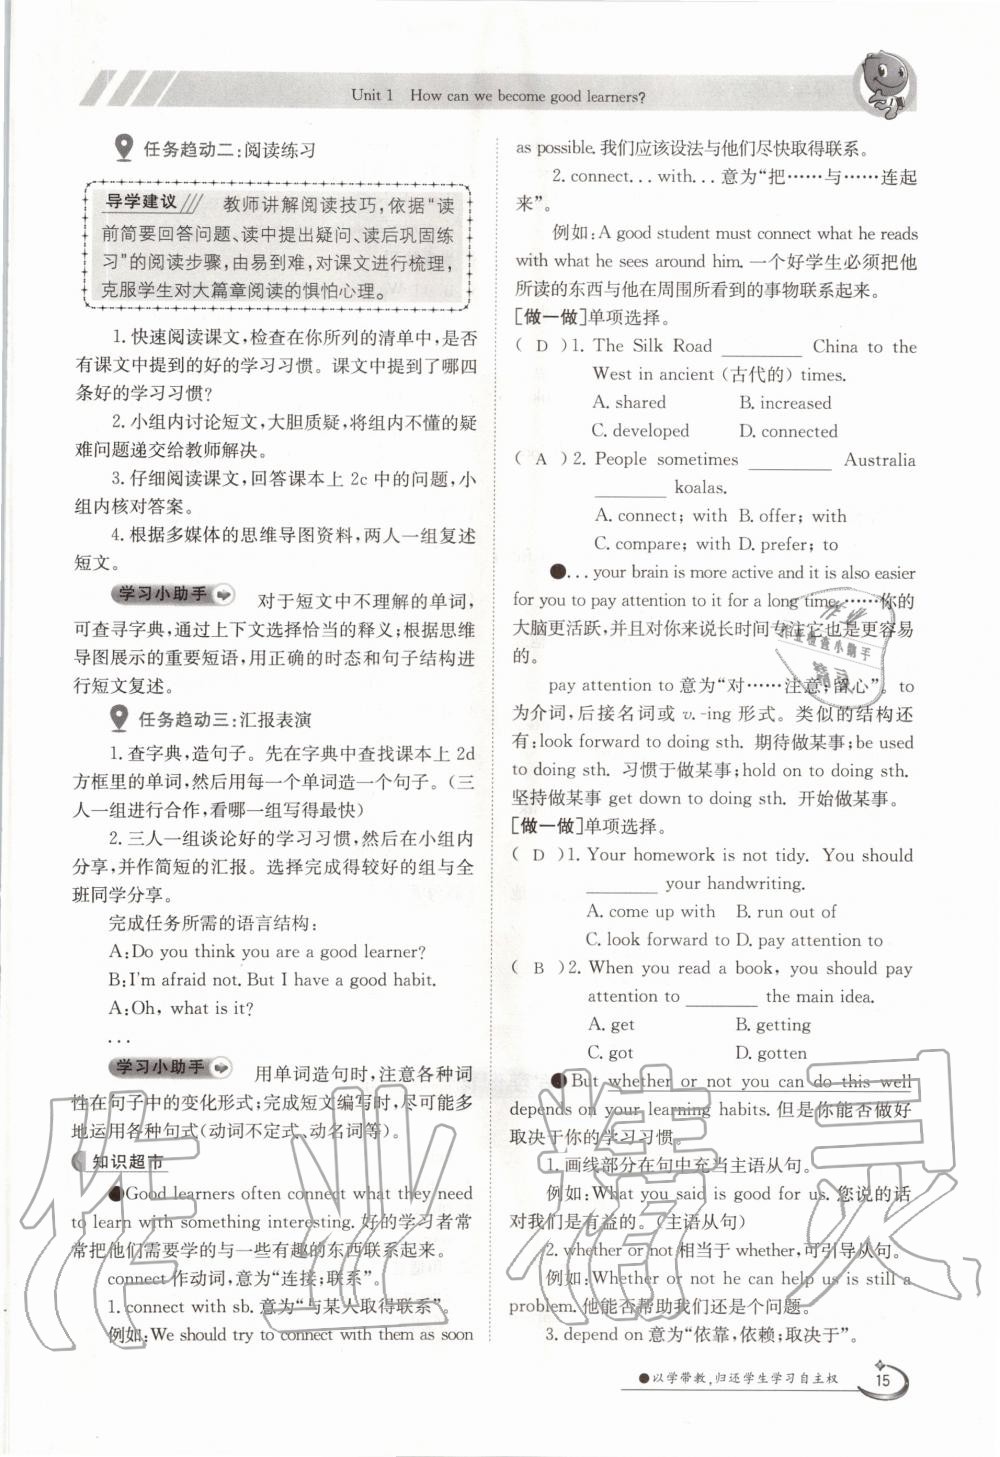 Unit 1 How can we become good learners?
任务趋动二:阅读练习
导学建议 教师讲解阅读技巧,依据“读
前简要回答问题、读中提出疑问、读后巩固练
习”的阅读步骤,由易到难,对课文进行梳理,
克服学生对大篇章阅读的惧怕心理。
1.快速阅读课文,检查在你所列的清单中,是否
有课文中提到的好的学习习惯。课文中提到了哪四
条好的学习习惯?
2.小组内讨论短文,大胆质疑,将组内不懂的疑
难问题递交给教师解决。
3.仔细阅读课文,回答课本上 2c 中的问题,小
组内核对答案。
4.根据多媒体的思维导图资料,两人一组复述
短文。
学习小助手 对于短文中不理解的单词,
可查寻字典,通过上下文选择恰当的释义;根据思维
导图展示的重要短语,用正确的时态和句子结构进
行短文复述。
任务趋动三:汇报表演
1.查字典,造句子。先在字典中查找课本上 2d
方框里的单词,然后用每一个单词造一个句子。(三
人一组进行合作,看哪一组写得最快)
2.三人一组谈论好的学习习惯,然后在小组内
分享,并作简短的汇报。选择完成得较好的组与全
班同学分享。
完成任务所需的语言结构:
A:Do you think you are a good learner?
B:I'm afraid not. But I have a good habit.
A:Oh, what is it?
...
学习小助手 用单词造句时,注意各种词
性在句子中的变化形式;完成短文编写时,尽可能多
地运用各种句式(动词不定式、动名词等)。
知识超市
●Good learners often connect what they need
to learn with something interesting. 好的学习者常
常把他们需要学的与一些有趣的东西联系起来。
connect 作动词,意为“连接;联系”。
1. connect with sb. 意为“与某人取得联系”。
例如:We should try to connect with them as soon
as possible. 我们应该设法与他们尽快取得联系。
2. connect... with... 意为“把……与……连起
来”。
例如:A good student must connect what he reads
with what he sees around him. 一个好学生必须把他
所读的东西与他在周围所看到的事物联系起来。
[做一做]单项选择。
( D )1. The Silk Road ________ China to the
West in ancient (古代的) times.
A. shared B. increased
C. developed D. connected
( A )2. People sometimes ________ Australia
________ koalas.
A. connect; with B. offer; with
C. compare; with D. prefer; to
●... your brain is more active and it is also easier
for you to pay attention to it for a long time. ……你的
大脑更活跃,并且对你来说长时间专注它也是更容易
的。
pay attention to 意为“对……注意;留心”。to
为介词,后接名词或 v. -ing 形式。类似的结构还
有:look forward to doing sth. 期待做某事;be used
to doing sth. 习惯于做某事;hold on to doing sth.
坚持做某事 get down to doing sth. 开始做某事。
[做一做]单项选择。
( D )1. Your homework is not tidy. You should
________ your handwriting.
A. come up with B. run out of
C. look forward to D. pay attention to
( B )2. When you read a book, you should pay
attention to ________ the main idea.
A. get B. getting
C. got D. gotten
●But whether or not you can do this well
depends on your learning habits. 但是你能否做好
取决于你的学习习惯。
1.画线部分在句中充当主语从句。
例如:What you said is good for us. 您说的话
对我们是有益的。(主语从句)
2. whether or not 相当于 whether,可引导从句。
例如:Whether or not he can help us is still a
problem. 他能否帮助我们还是个问题。
3. depend on 意为“依靠,依赖;取决于”。
●以学带教,归还学生学习自主权
15
作业精灵
作业
作业检查小助手
精灵